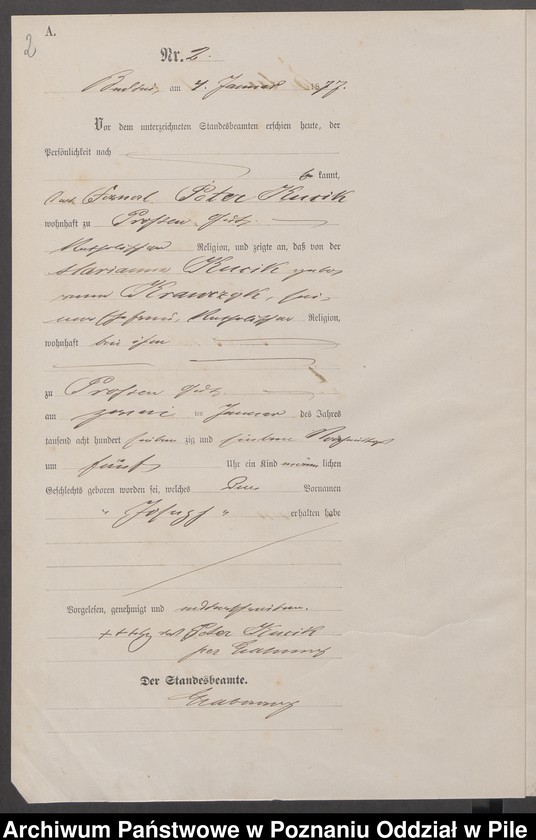 2
A.
Nr. 2.
am 4. Januar 1877.
Vor dem unterzeichneten Standesbeamten erschien heute, der
Persönlichkeit nach
be kannt,
Peter Kucik
wohnhaft zu Gut
Katholischer Religion, und zeigte an, daß von der
Marianna Kucik gebo
renen Krawczyk, sei
ner Ehefrau, Katholischer Religion,
wohnhaft bei ihm
zu Gut
am zwei ten Januar des Jahres
tausend acht hundert sieben zig und sieben Nachmittags
um fünf Uhr ein Kind männ lichen
Geschlechts geboren worden sei, welches den Vornamen
„ Joseph " erhalten habe
Vorgelesen, genehmigt und
+++ Peter Kucik
per
Der Standesbeamte.
Archiwum Państwowe w Poznaniu Oddział w Pile